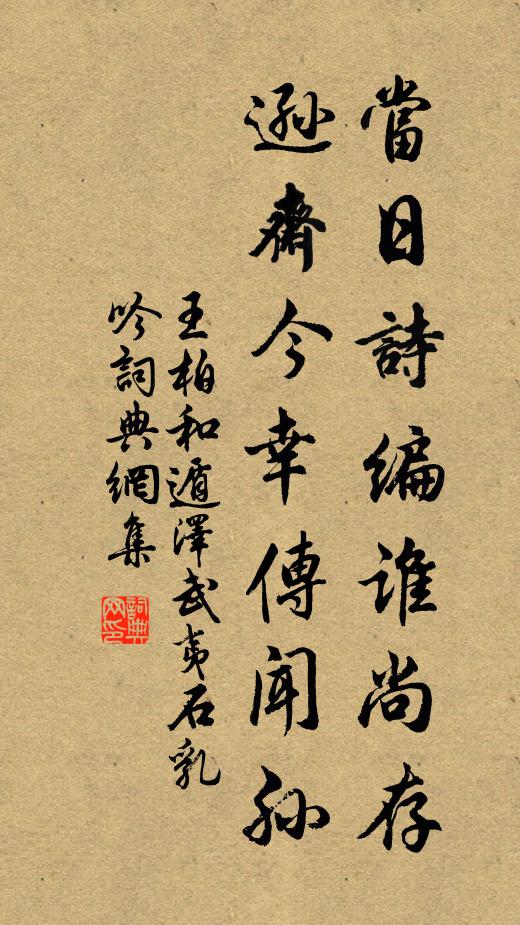 當日詩編誰尚存
遜齋今幸傳聞孫
王柏和遁澤武夷石乳
吟詞典網集
詞典网印